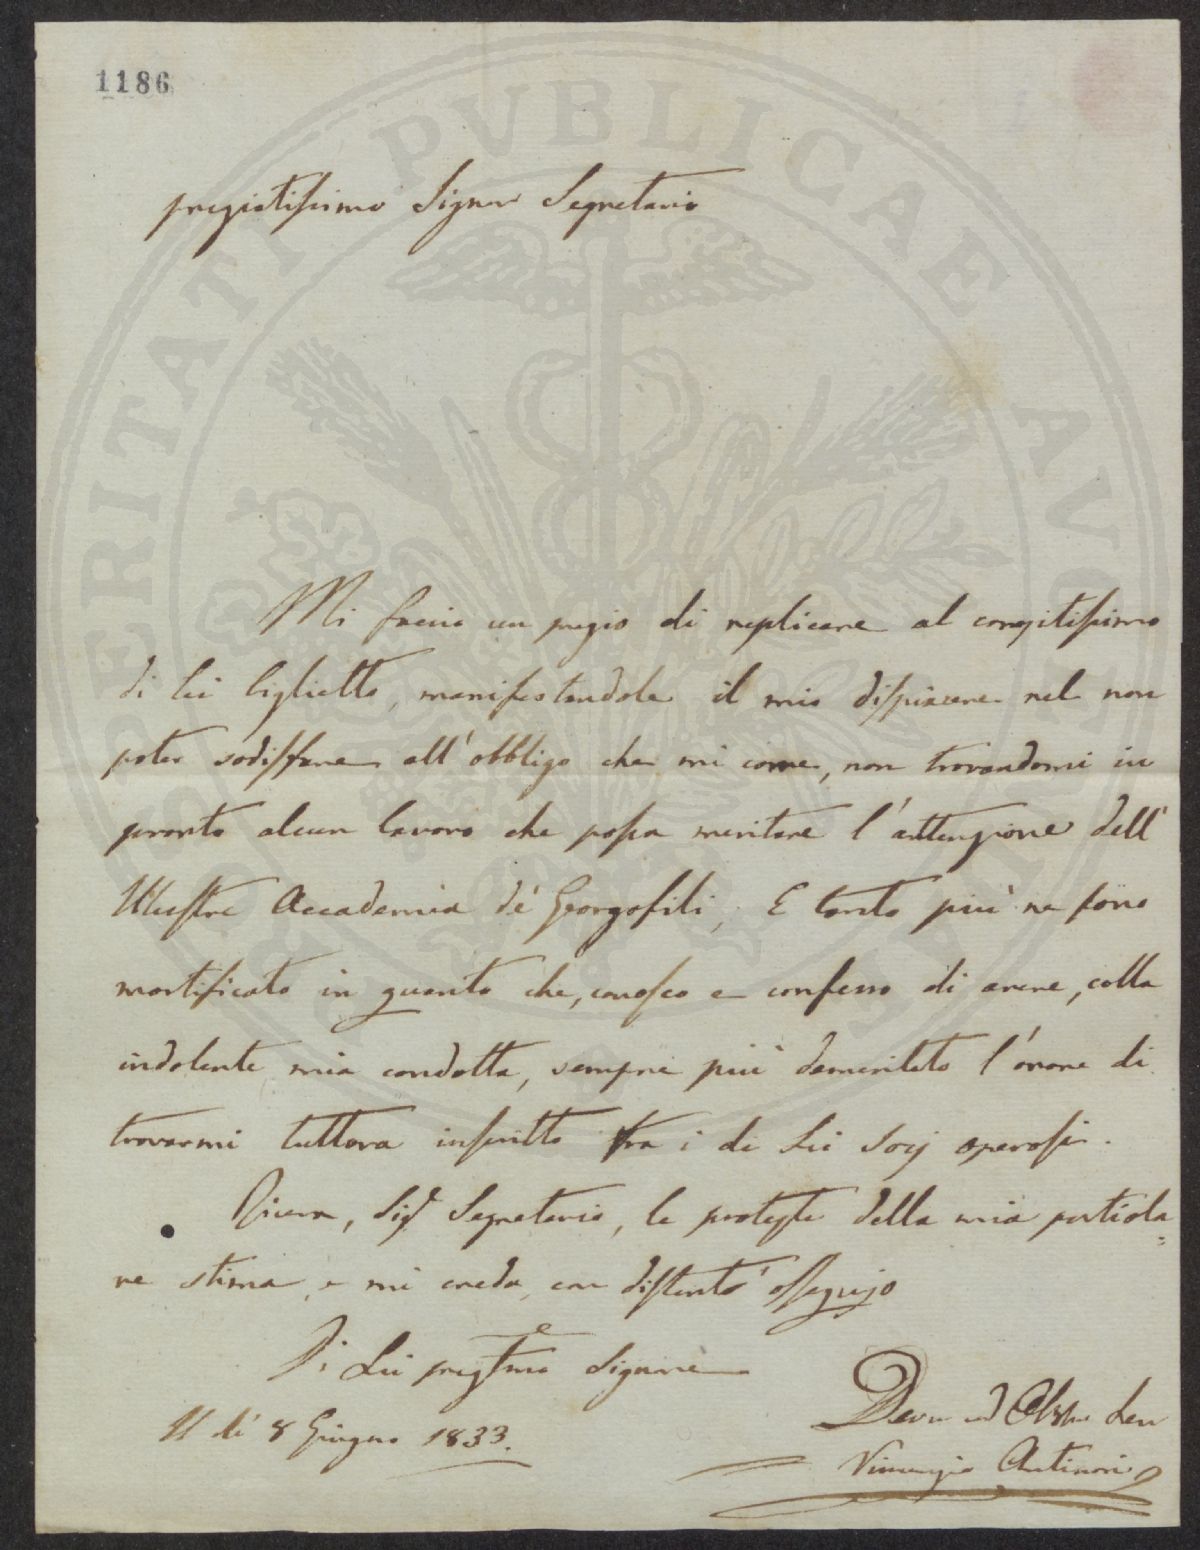 1186
PROSPERITATI PVBLICAE AVGENDAE
pregiatissimo Signor Segretario
Mi faccio un pregio di replicare al compitissimo
di Lei biglietto, manifestandole il mio dispiacere nel non
poter sodisfare all'obbligo che mi corre, non trovandomi in
pronto alcun lavoro che possa meritare l'attenzione dell'
Illustre Accademia de' Georgofili, E tanto più ne sono
mortificato in quanto che, conosco e confesso di avere, colla
indolente mia condotta, sempre più demeritato l'onore di
trovarmi tuttora inscritto tra i di Lei Socj operosi.
Riceva, Sigr Segretario, le proteste della mia particola=
re stima, e mi creda con distinto ossequjo
Di Lei pregmo Signore
Il dì 8 Giugno 1833.
Devmo ed Obbmo Serv
Vincenzio Antinori